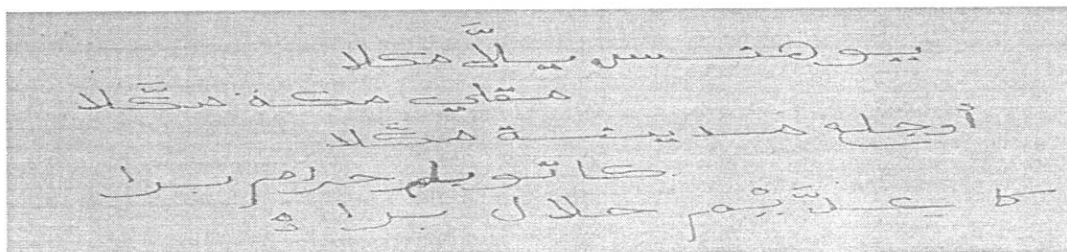 يوهنس يلاَّ مكلا
مقلي مكة مكَّلا
أوجله مدينة مكَّلا
كاتو يلم حرام برا
كا عدَّيْم حلال برا